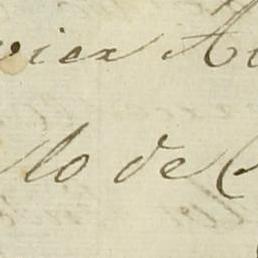 vier A
lo de C